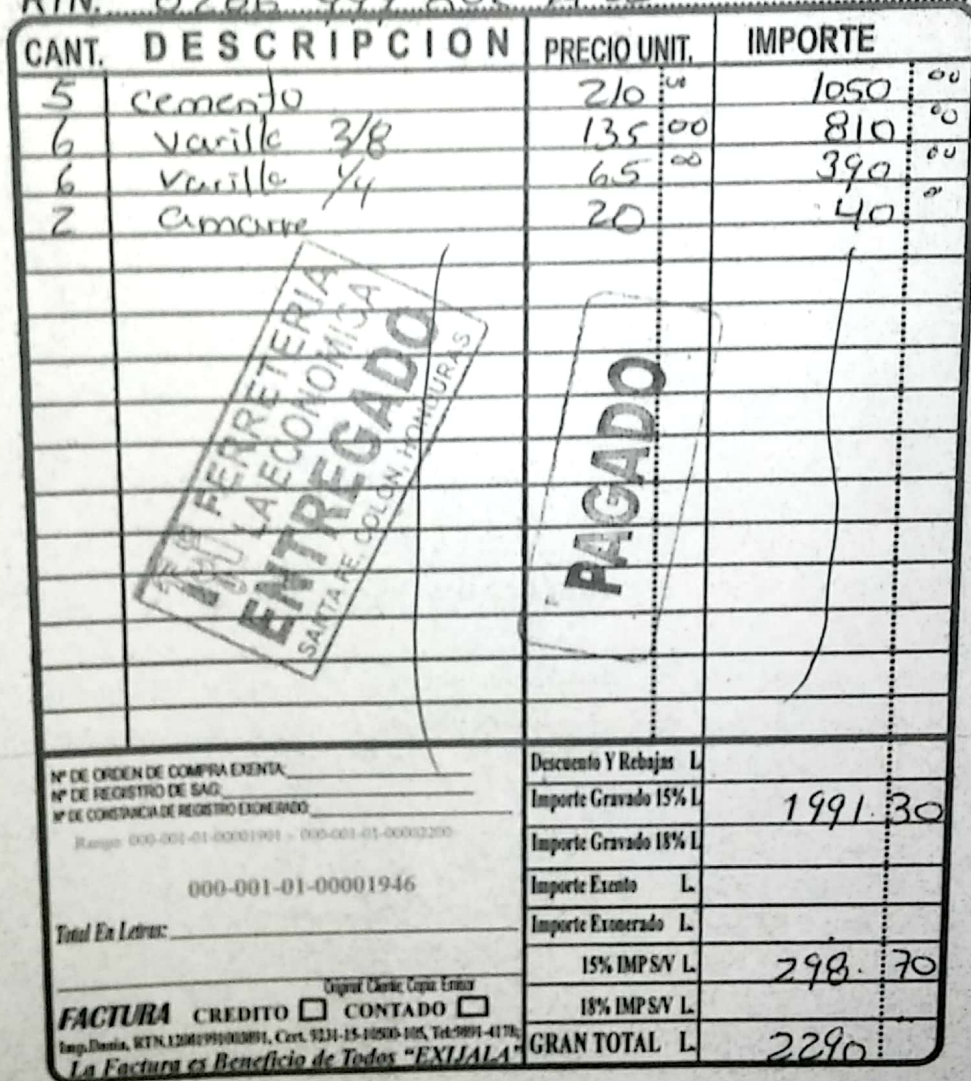 RTN.
CANT. DESCRIPCION PRECIO UNIT. IMPORTE
5 cemento 210 00 1050 00
6 Varilla 3/8 135 00 810 00
6 Varilla 1/4 65 00 390 00
2 amarre 20 40 00
FERRETERIA
LA ECONOMICA
ENTREGADO
SANTA FE, COLON, HONDURAS
PAGADO
Nº DE ORDEN DE COMPRA EXENTA:
Nº DE REGISTRO DE SAG:
Nº DE CONSTANCIA DE REGISTRO EXONERADO:
Rango: 000-001-01-00001901 - 000-001-01-00002200
000-001-01-00001946
Total En Letras:
Original: Cliente, Copia: Emisor
FACTURA CREDITO CONTADO
Imp.Dania, RTN.12081991003891, Cert. 9231-15-10500-105, Tel:9891-4178
La Factura es Beneficio de Todos "EXIJALA"
Descuento Y Rebajas L
Importe Gravado 15% L 1991.30
Importe Gravado 18% L
Importe Exento L.
Importe Exonerado L.
15% IMP S/V L 298.70
18% IMP S/V L.
GRAN TOTAL L 2290